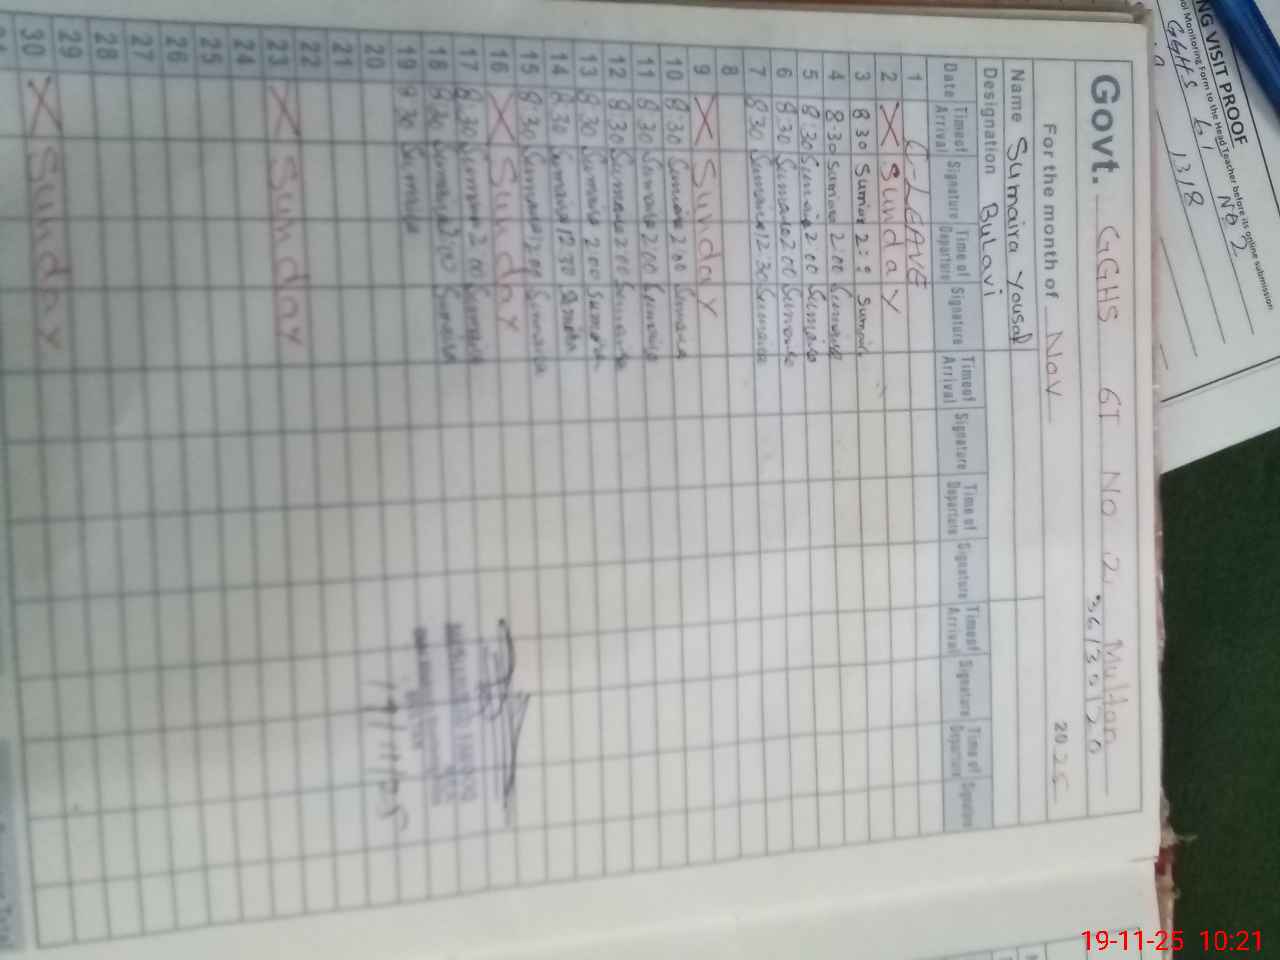 NG VISIT PROOF
ool Monitoring Form to the Head Teacher before its online submission
GGHS 6T No 2
1318
Govt. GGHS 6T NO 2, Multan
36130120
For the month of Nov 2025
Name Sumaira Yousaf
Designation BuLavi
Date Timeof Arrival Signature Time of Departure Signature Timeof Arrival Signature Time of Departure Signature Timeof Arrival Signature Time of Departure Signature
1 C-LEAVE
2 X Sunday
3 8 30 Sumair 2:
4 8:30 Sumaira 2:00 Sumaira
5 8:30 Sumaira 2:00 Sumaira
6 8:30 Sumaira 2:00 Sumaira
7 8:30 Sumaira 12:30 Sumaira
8
9 X Sunday
10 8:30 Sumaira 2:00 Sumaira
11 8:30 Sumaira 2:00 Sumaira
12 8:30 Sumaira 2:00 Sumaira
13 8:30 Sumaira 2:00 Sumaira
14 8:30 Sumaira 12 30
15 8:30 Sumaira Sumaira
16 X Sunday
17 8:30 Sumaira 2:00 Sumaira
18 8:30 Sumaira Sumaira
19 8:30 Sumaira
20
21
22
23 X Sunday
24
25
26
27
28
29
30 X Sunday
19-11-25 10:21